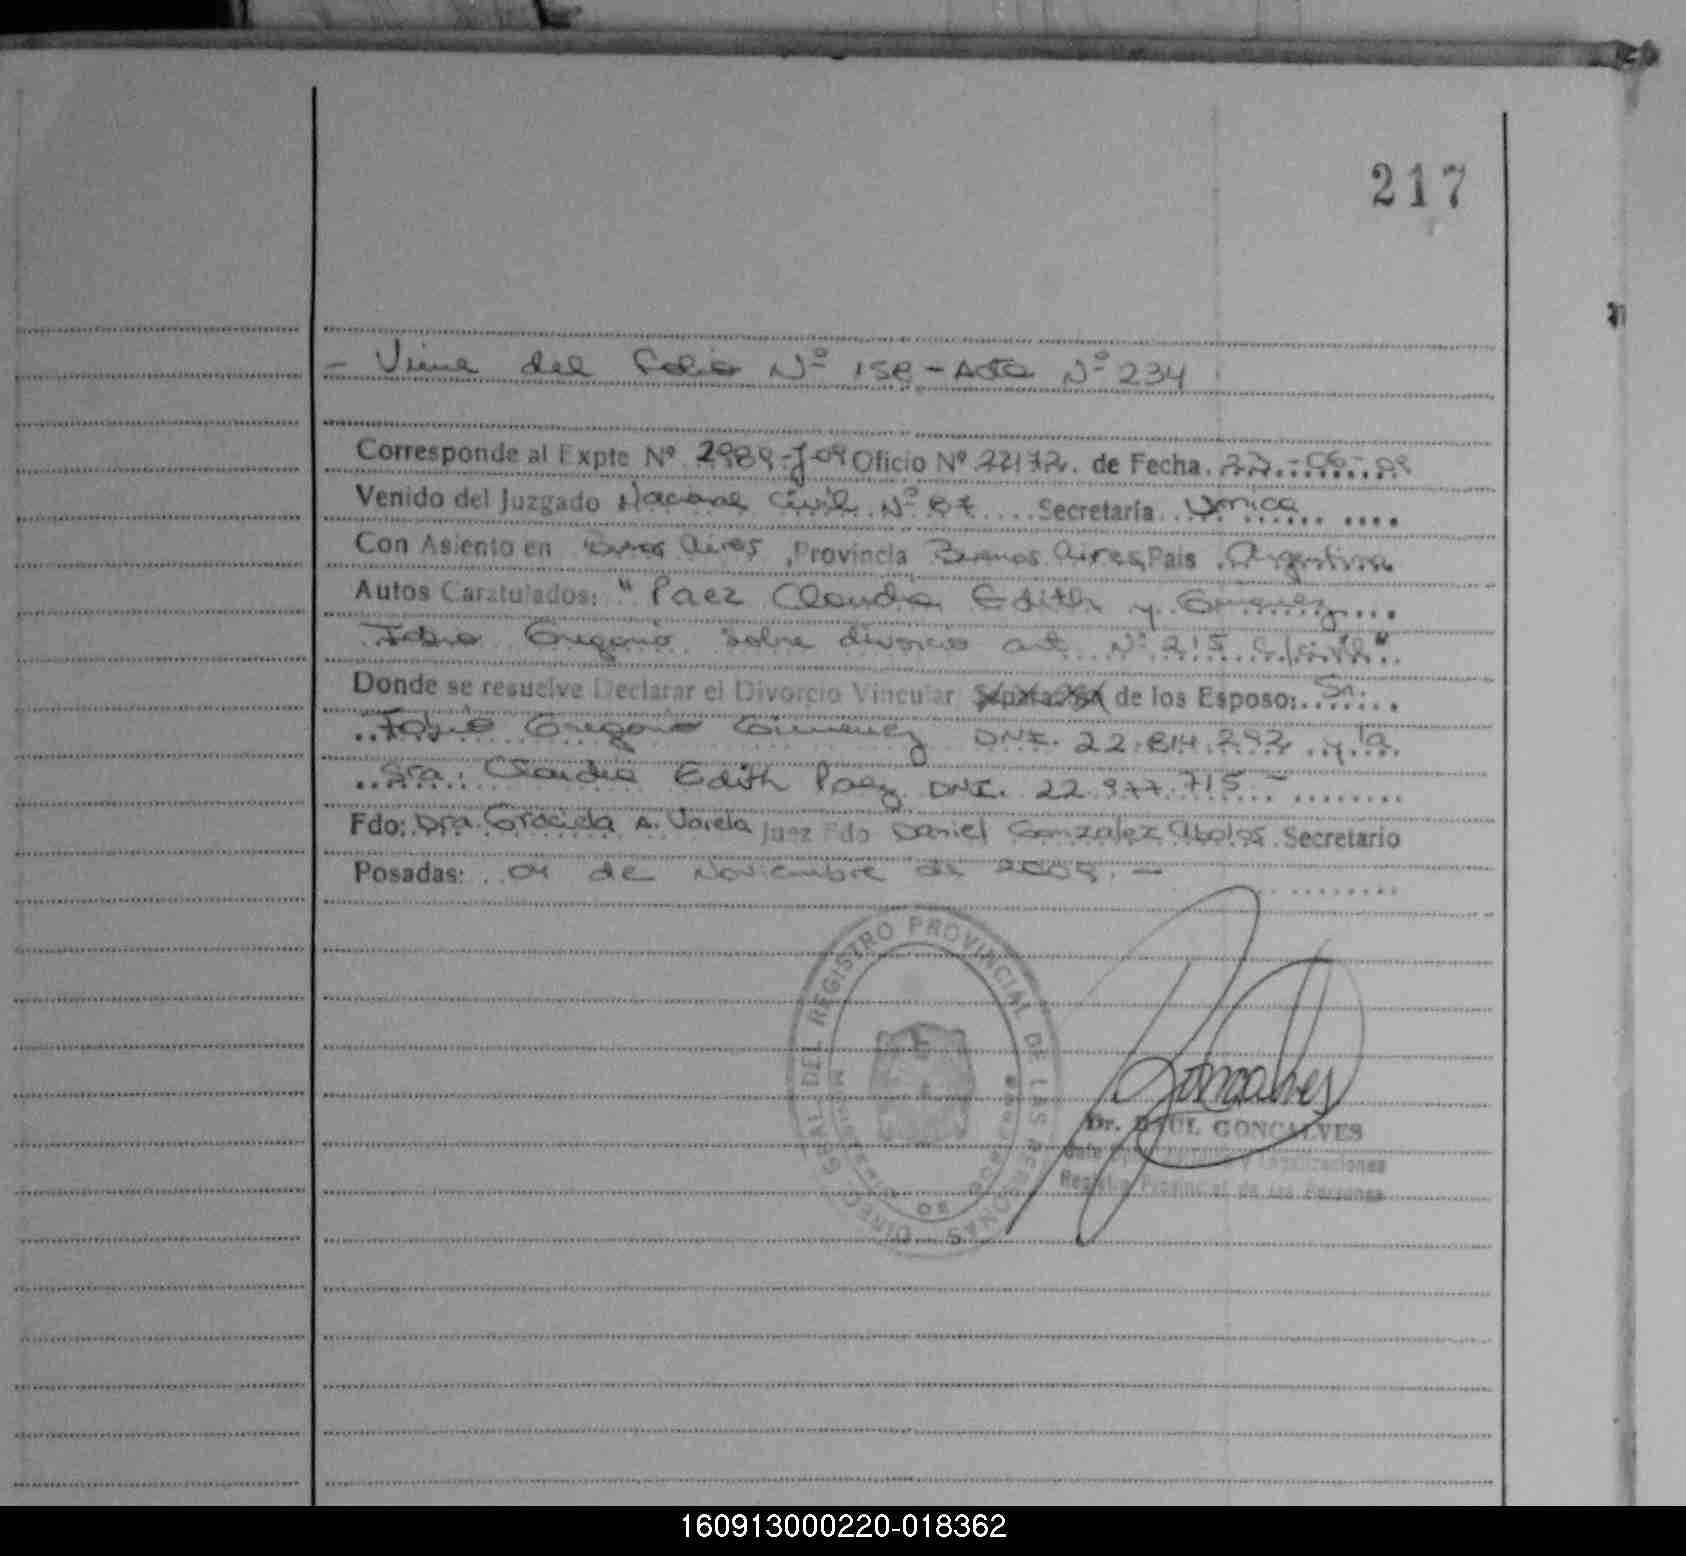 217
- Viene del Folio Nº 158 - Acta Nº 234
Corresponde al Expte Nº 2989-J-09 Oficio Nº 22172. de Fecha. 22-06-09
Venido del Juzgado Nacional Civil Nº 87 Secretaría Unica
Con Asiento en Buenos Aires, Provincia Buenos Aires, Pais Argentina
Autos Caratulados: " Paez Claudia Edith y Gimenez
Fabio Gregorio sobre divorcio art. Nº 215 C/civil"
Donde se resuelve Declarar el Divorcio Vincular de los Esposo: Sr.
Fabio Gregorio Gimenez DNI. 22.814.292 y la
Sra: Claudia Edith Paez DNI. 22.977.715 -
Fdo: Dra. Graciela A. Varela Juez Fdo Daniel Gonzalez Abalos. Secretario
Posadas: 04 de Noviembre de 2009. -
DIREC. GRAL. DEL REGISTRO PROVINCIAL DE LAS PERSONAS
MISIONES
Goncalves
Dr. RAUL GONCALVES
y Legalizaciones
Registro Provincial de las Personas
160913000220-018362